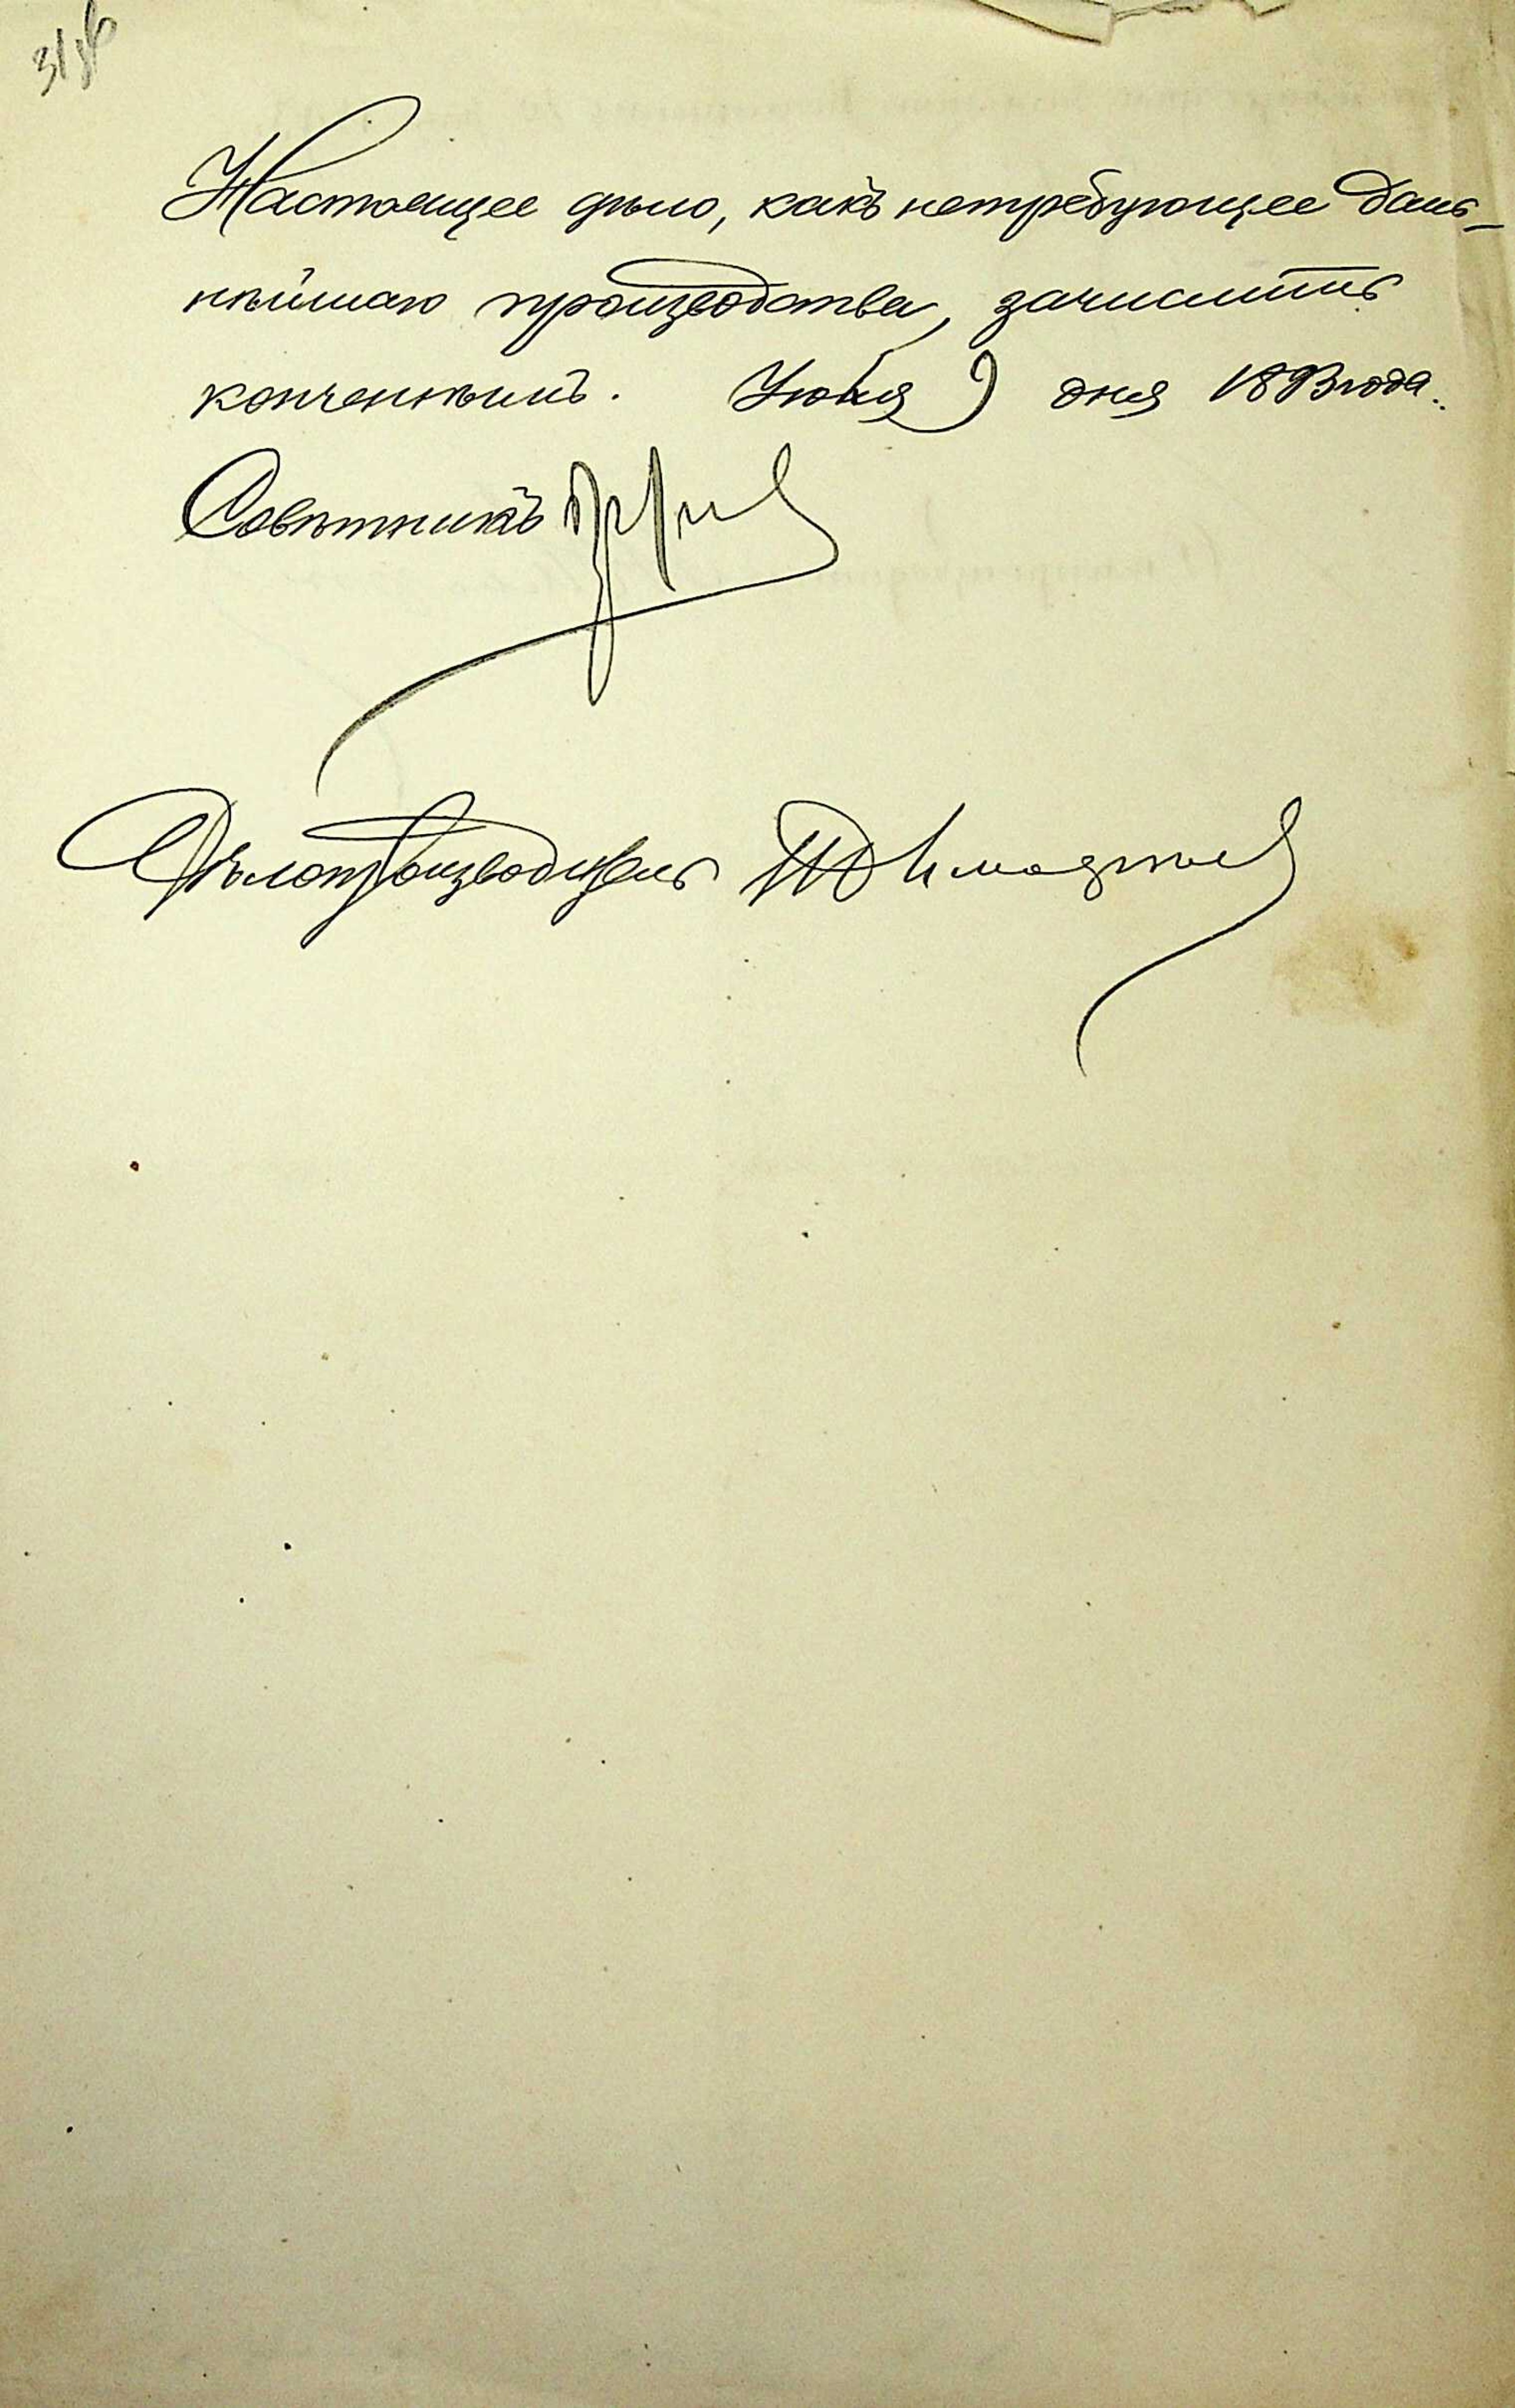 Настоящее дѣло, какъ нетребующее даль-
нѣйшаго производства, зачислить
конченнымъ. 9 дня 1893 года.
Совѣтникъ
Дѣлопроизводитель